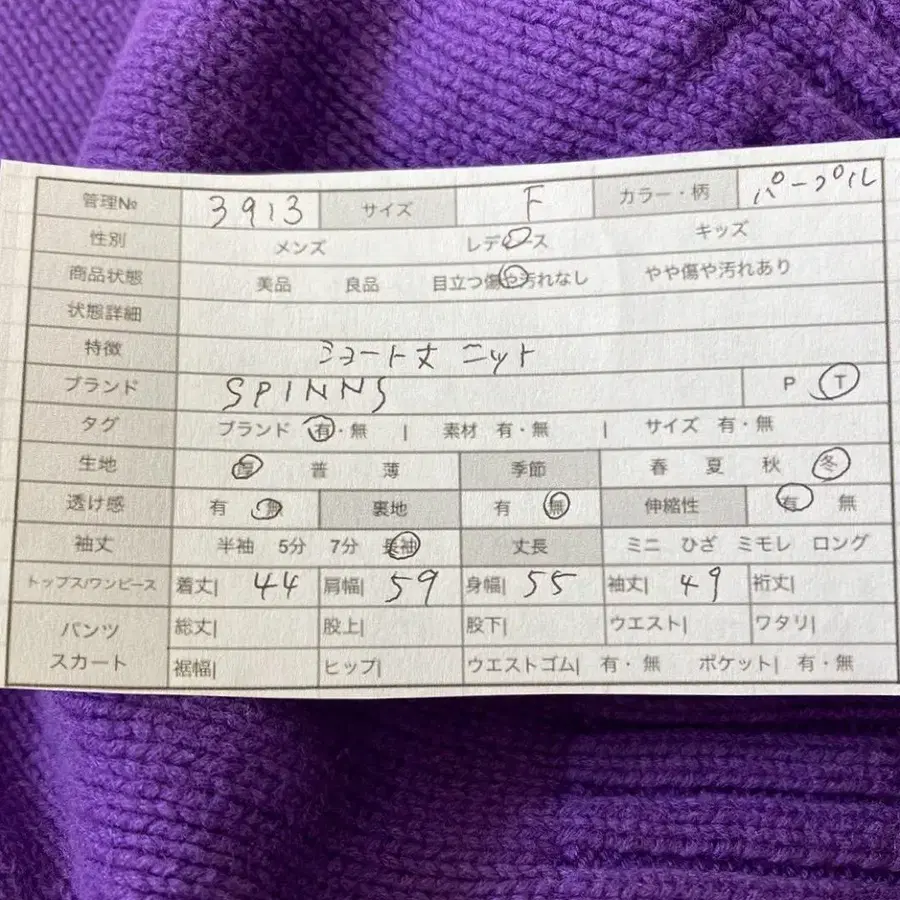 管理№ 3913 サイズ F カラー・柄 パープル
性別 メンズ レディース キッズ
商品状態 美品 良品 目立つ傷や汚れなし やや傷や汚れあり
状態詳細
特徴 ショート丈 ニット
ブランド SPINNS P T
タグ ブランド 有・無 | 素材 有・無 | サイズ 有・無
生地 厚 普 薄 季節 春 夏 秋 冬
透け感 有 無 裏地 有 無 伸縮性 有 無
袖丈 半袖 5分 7分 長袖 丈長 ミニ ひざ ミモレ ロング
トップス/ワンピース 着丈| 44 肩幅| 59 身幅| 55 袖丈| 49 裄丈|
パンツ スカート 総丈| 股上| 股下| ウエスト| ワタリ|
裾幅| ヒップ| ウエストゴム| 有・無 ポケット| 有・無